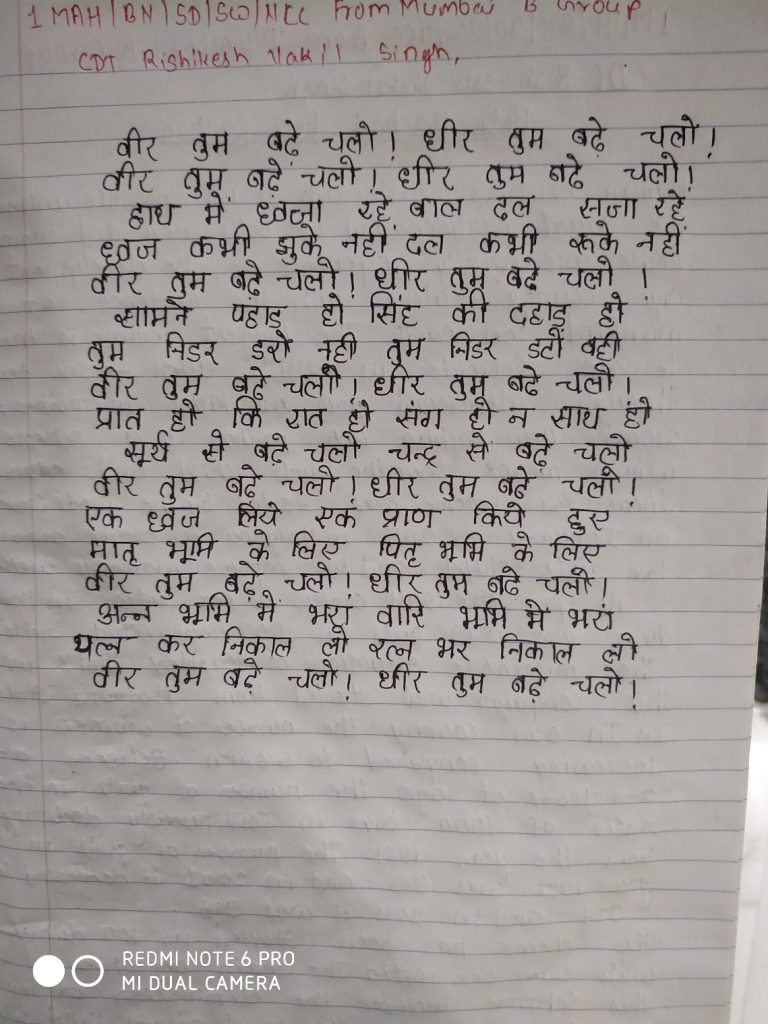 1 MAH/BN/SD/SW/NCC From Mumbai B Group,
CDT Rishikesh Vakil Singh,
वीर तुम बढ़े चलो! धीर तुम बढ़े चलो!
वीर तुम बढ़े चलो! धीर तुम बढे चलो!
हाथ में ध्वजा रहे बाल दल सजा रहे
ध्वज कभी झुके नहीं दल कभी रूके नहीं
वीर तुम बढ़े चलो! धीर तुम बढे चलो!
सामने पहाड़ हो सिंह की दहाड़ हो
तुम निडर डरो नही तुम निडर डटो वही
वीर तुम बढ़े चलो! धीर तुम बढे चलो!
प्रात हो कि रात हो संग हो न साथ हो
सूर्य से बढ़े चलो चन्द्र से बढ़े चलो
वीर तुम बढ़े चलो! धीर तुम बढ़े चलो!
एक ध्वज लिये एक प्राण किये हुए
मातृ भूमि के लिए पितृ भूमि के लिए
वीर तुम बढ़े चलो! धीर तुम बढे चलो!
अन्न भूमि में भरा वारि भूमि में भरा
यत्न कर निकाल लो रत्न भर निकाल लो
वीर तुम बढ़े चलो! धीर तुम बढ़े चलो!
REDMI NOTE 6 PRO
MI DUAL CAMERA